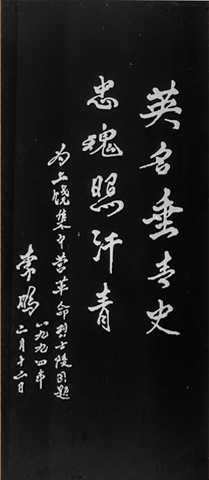 英名垂青史
忠魂照汗青
为上饶集中营革命烈士陵园题
李鹏
一九九四年
二月十六日